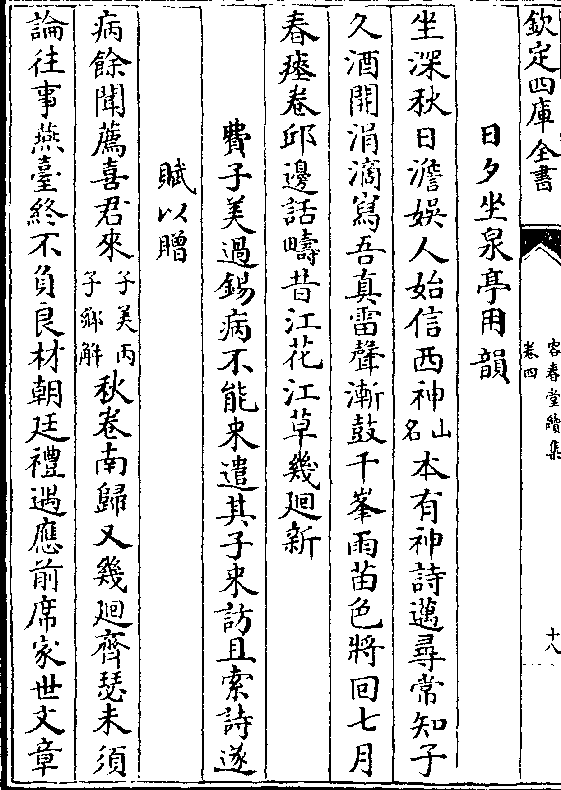 欽定四庫全書
容春堂續集
卷四
十八
日夕坐泉亭用韻
坐深秋日澹娛人始信西神山名本有神詩邁尋常知子
久酒開涓滴寫吾真雷聲漸鼓千峯雨苗色將回七月
春瘞卷邱邊話疇昔江花江草幾迴新
費子美過錫病不能來遣其子來訪且索詩遂
賦以贈
病餘聞薦喜君來子美丙子鄉解秋卷南歸又幾迴齊瑟未須
論往事燕臺終不負良材朝廷禮遇應前席家世文章